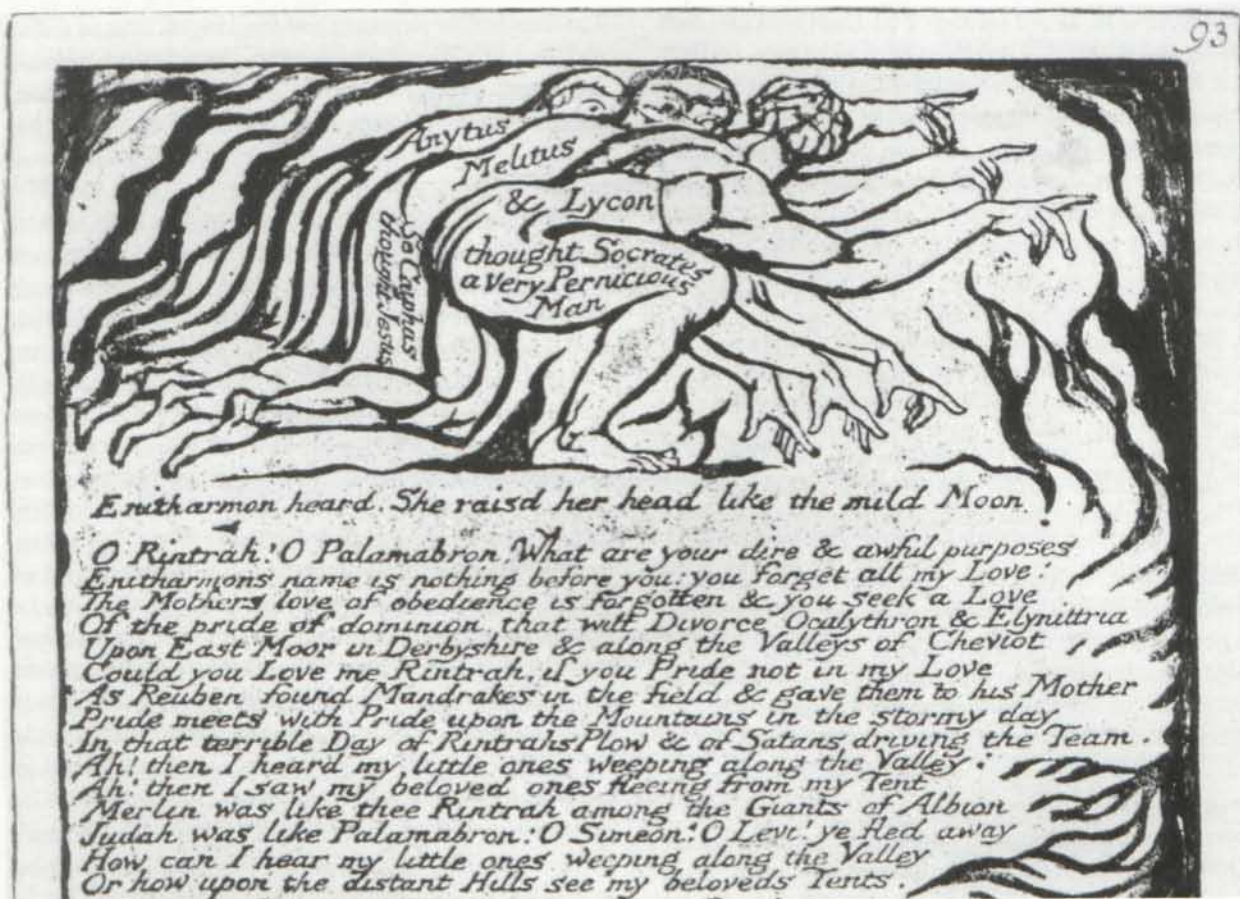 93
Anytus
Melitus
& Lycon
thought Socrates
a very Pernicious
Man
So Cayphas
thought Jesus
Enitharmon heard. She raisd her head like the mild Moon
O Rintrah! O Palamabron! What are your dire & awful purposes
Enitharmons name is nothing before you: you forget all my Love!
The Mothers love of obedience is forgotten & you seek a Love
Of the pride of dominion, that will Divorce Ocalythron & Elynittria
Upon East Moor in Derbyshire & along the Valleys of Cheviot
Could you Love me Rintrah, if you Pride not in my Love
As Reuben found Mandrakes in the field & gave them to his Mother
Pride meets with Pride upon the Mountains in the stormy day
In that terrible Day of Rintrahs Plow & of Satans driving the Team.
Ah! then I heard my little ones weeping along the Valley!
Ah! then I saw my beloved ones fleeing from my Tent
Merlin was like thee Rintrah among the Giants of Albion
Judah was like Palamabron: O Simeon! O Levi! ye fled away
How can I hear my little ones weeping along the Valley
Or how upon the distant Hills see my beloveds Tents.